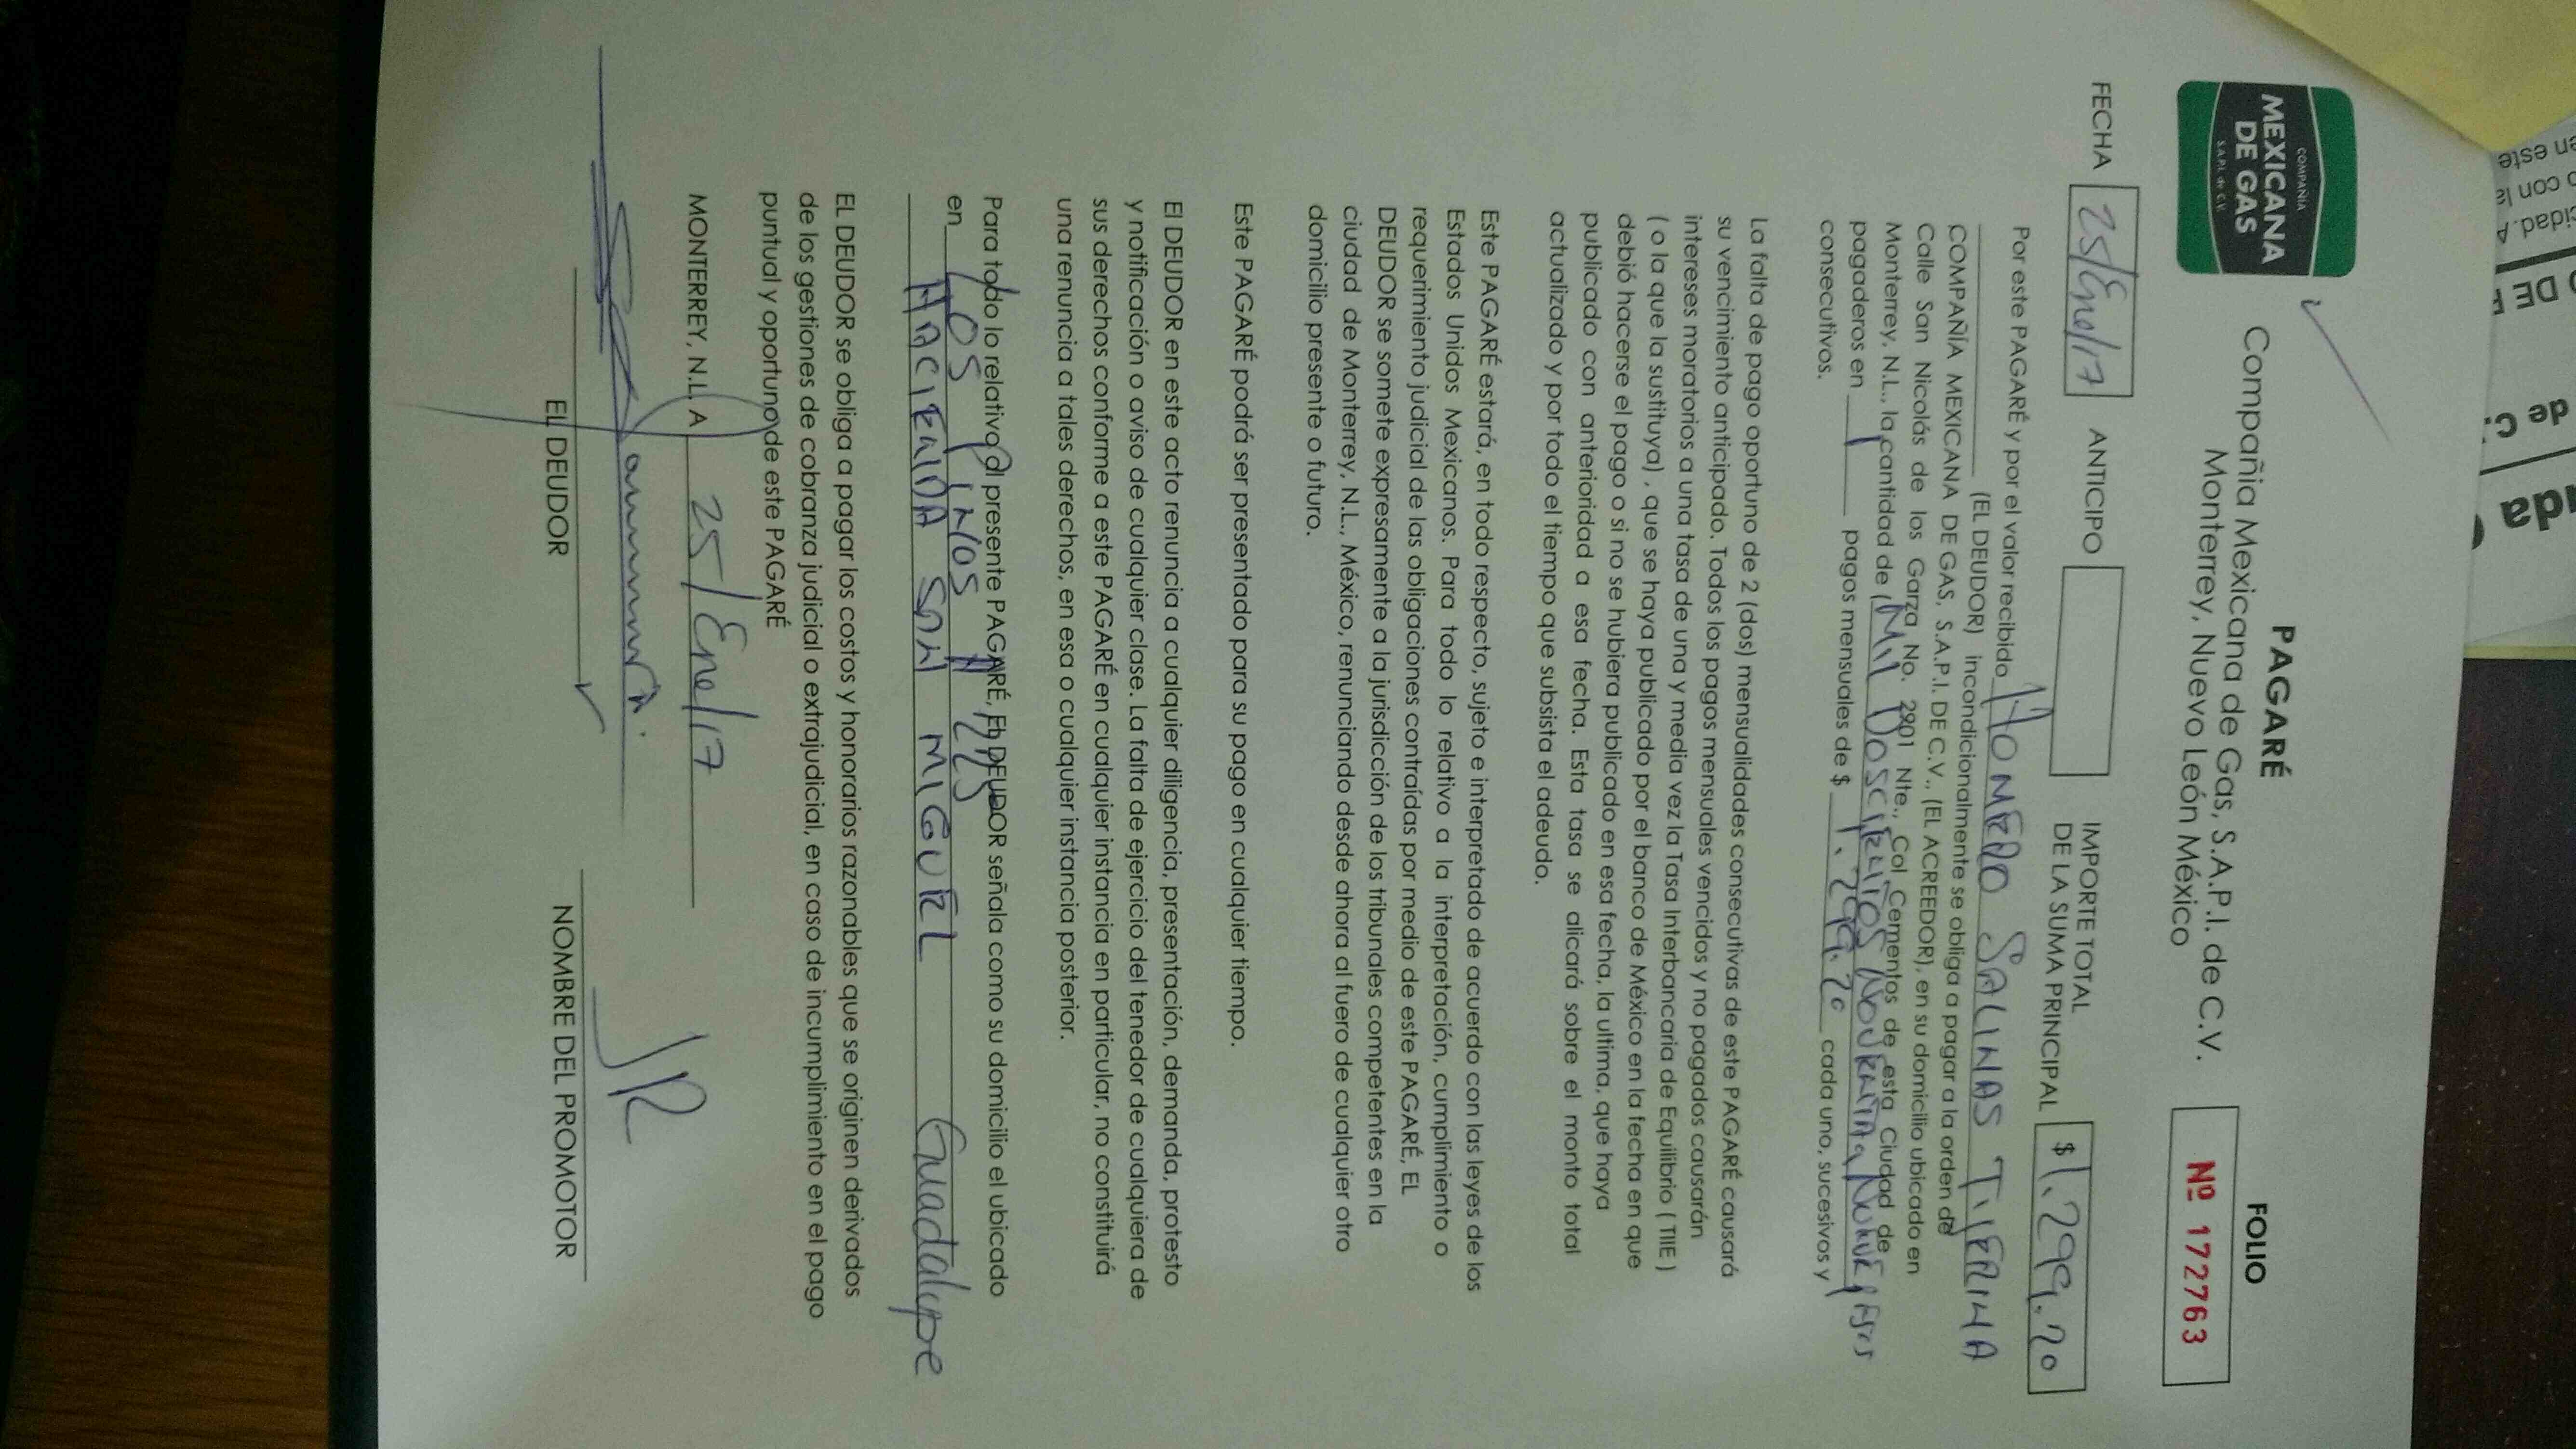 COMPAÑÍA
MEXICANA
DE GAS
S.A.P.I. de C.V.
PAGARÉ
Compañia Mexicana de Gas, S.A.P.I. de C.V.
Monterrey, Nuevo León México
FOLIO
Nº 172763
FECHA 25/Ene/17 ANTICIPO IMPORTE TOTAL DE LA SUMA PRINCIPAL $ 1.299.20
Por este PAGARÉ y por el valor recibido HOMERO SALINAS TIJERINA
(EL DEUDOR) incondicionalmente se obliga a pagar a la orden de
COMPAÑÍA MEXICANA DE GAS, S.A.P.I. DE C.V., (EL ACREEDOR), en su domicilio ubicado en
Calle San Nicolás de los Garza No. 2901 Nte., Col Cementos de esta Ciudad de
Monterrey, N.L., la cantidad de (Mil DOSCIENTOS NOVENTA y NUEVE PESOS
pagaderos en 1 pagos mensuales de $ 1.299.20 cada uno, sucesivos y
consecutivos.
La falta de pago oportuno de 2 (dos) mensualidades consecutivas de este PAGARÉ causará
su vencimiento anticipado. Todos los pagos mensuales vencidos y no pagados causarán
intereses moratorios a una tasa de una y media vez la Tasa Interbancaria de Equilibrio ( TIIE )
( o la que la sustituya) , que se haya publicado por el banco de México en la fecha en que
debió hacerse el pago o si no se hubiera publicado en esa fecha, la ultima, que haya
publicado con anterioridad a esa fecha. Esta tasa se alicará sobre el monto total
actualizado y por todo el tiempo que subsista el adeudo.
Este PAGARÉ estará, en todo respecto, sujeto e interpretado de acuerdo con las leyes de los
Estados Unidos Mexicanos. Para todo lo relativo a la interpretación, cumplimiento o
requerimiento judicial de las obligaciones contraídas por medio de este PAGARÉ, EL
DEUDOR se somete expresamente a la jurisdicción de los tribunales competentes en la
ciudad de Monterrey, N.L., México, renunciando desde ahora al fuero de cualquier otro
domicilio presente o futuro.
Este PAGARÉ podrá ser presentado para su pago en cualquier tiempo.
El DEUDOR en este acto renuncia a cualquier diligencia, presentación, demanda, protesto
y notificación o aviso de cualquier clase. La falta de ejercicio del tenedor de cualquiera de
sus derechos conforme a este PAGARÉ en cualquier instancia en particular, no constituirá
una renuncia a tales derechos, en esa o cualquier instancia posterior.
Para todo lo relativo al presente PAGARÉ, El DEUDOR señala como su domicilio el ubicado
en LOS PINOS # 225
HACIENDA SAN MIGUEL Guadalupe
EL DEUDOR se obliga a pagar los costos y honorarios razonables que se originen derivados
de los gestiones de cobranza judicial o extrajudicial, en caso de incumplimiento en el pago
puntual y oportuno de este PAGARÉ
MONTERREY, N.L., A 25/Ene/17
JR
EL DEUDOR NOMBRE DEL PROMOTOR